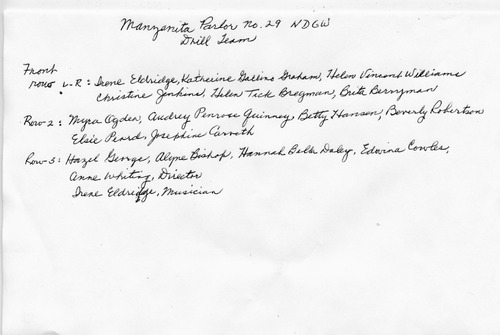 Manzanita Parlor No. 29 NDGW
Drill Team
Front
row L-R: Irene Eldridge, Katherine Graham, Helen Vincent Williams
Christine Jenkins, Helen Tick Bregman, Berryman
Row-2: Myra Ogden, Audrey Penrose Guinney, Betty Hansen, Beverly Robertson
Elsie Peard, Josephine
Row-3: Hazel George, Alyne Bishop, Hannah Belle Daley, Edwina Cowles,
Anne Whiting, Director
Irene Eldridge, Musician